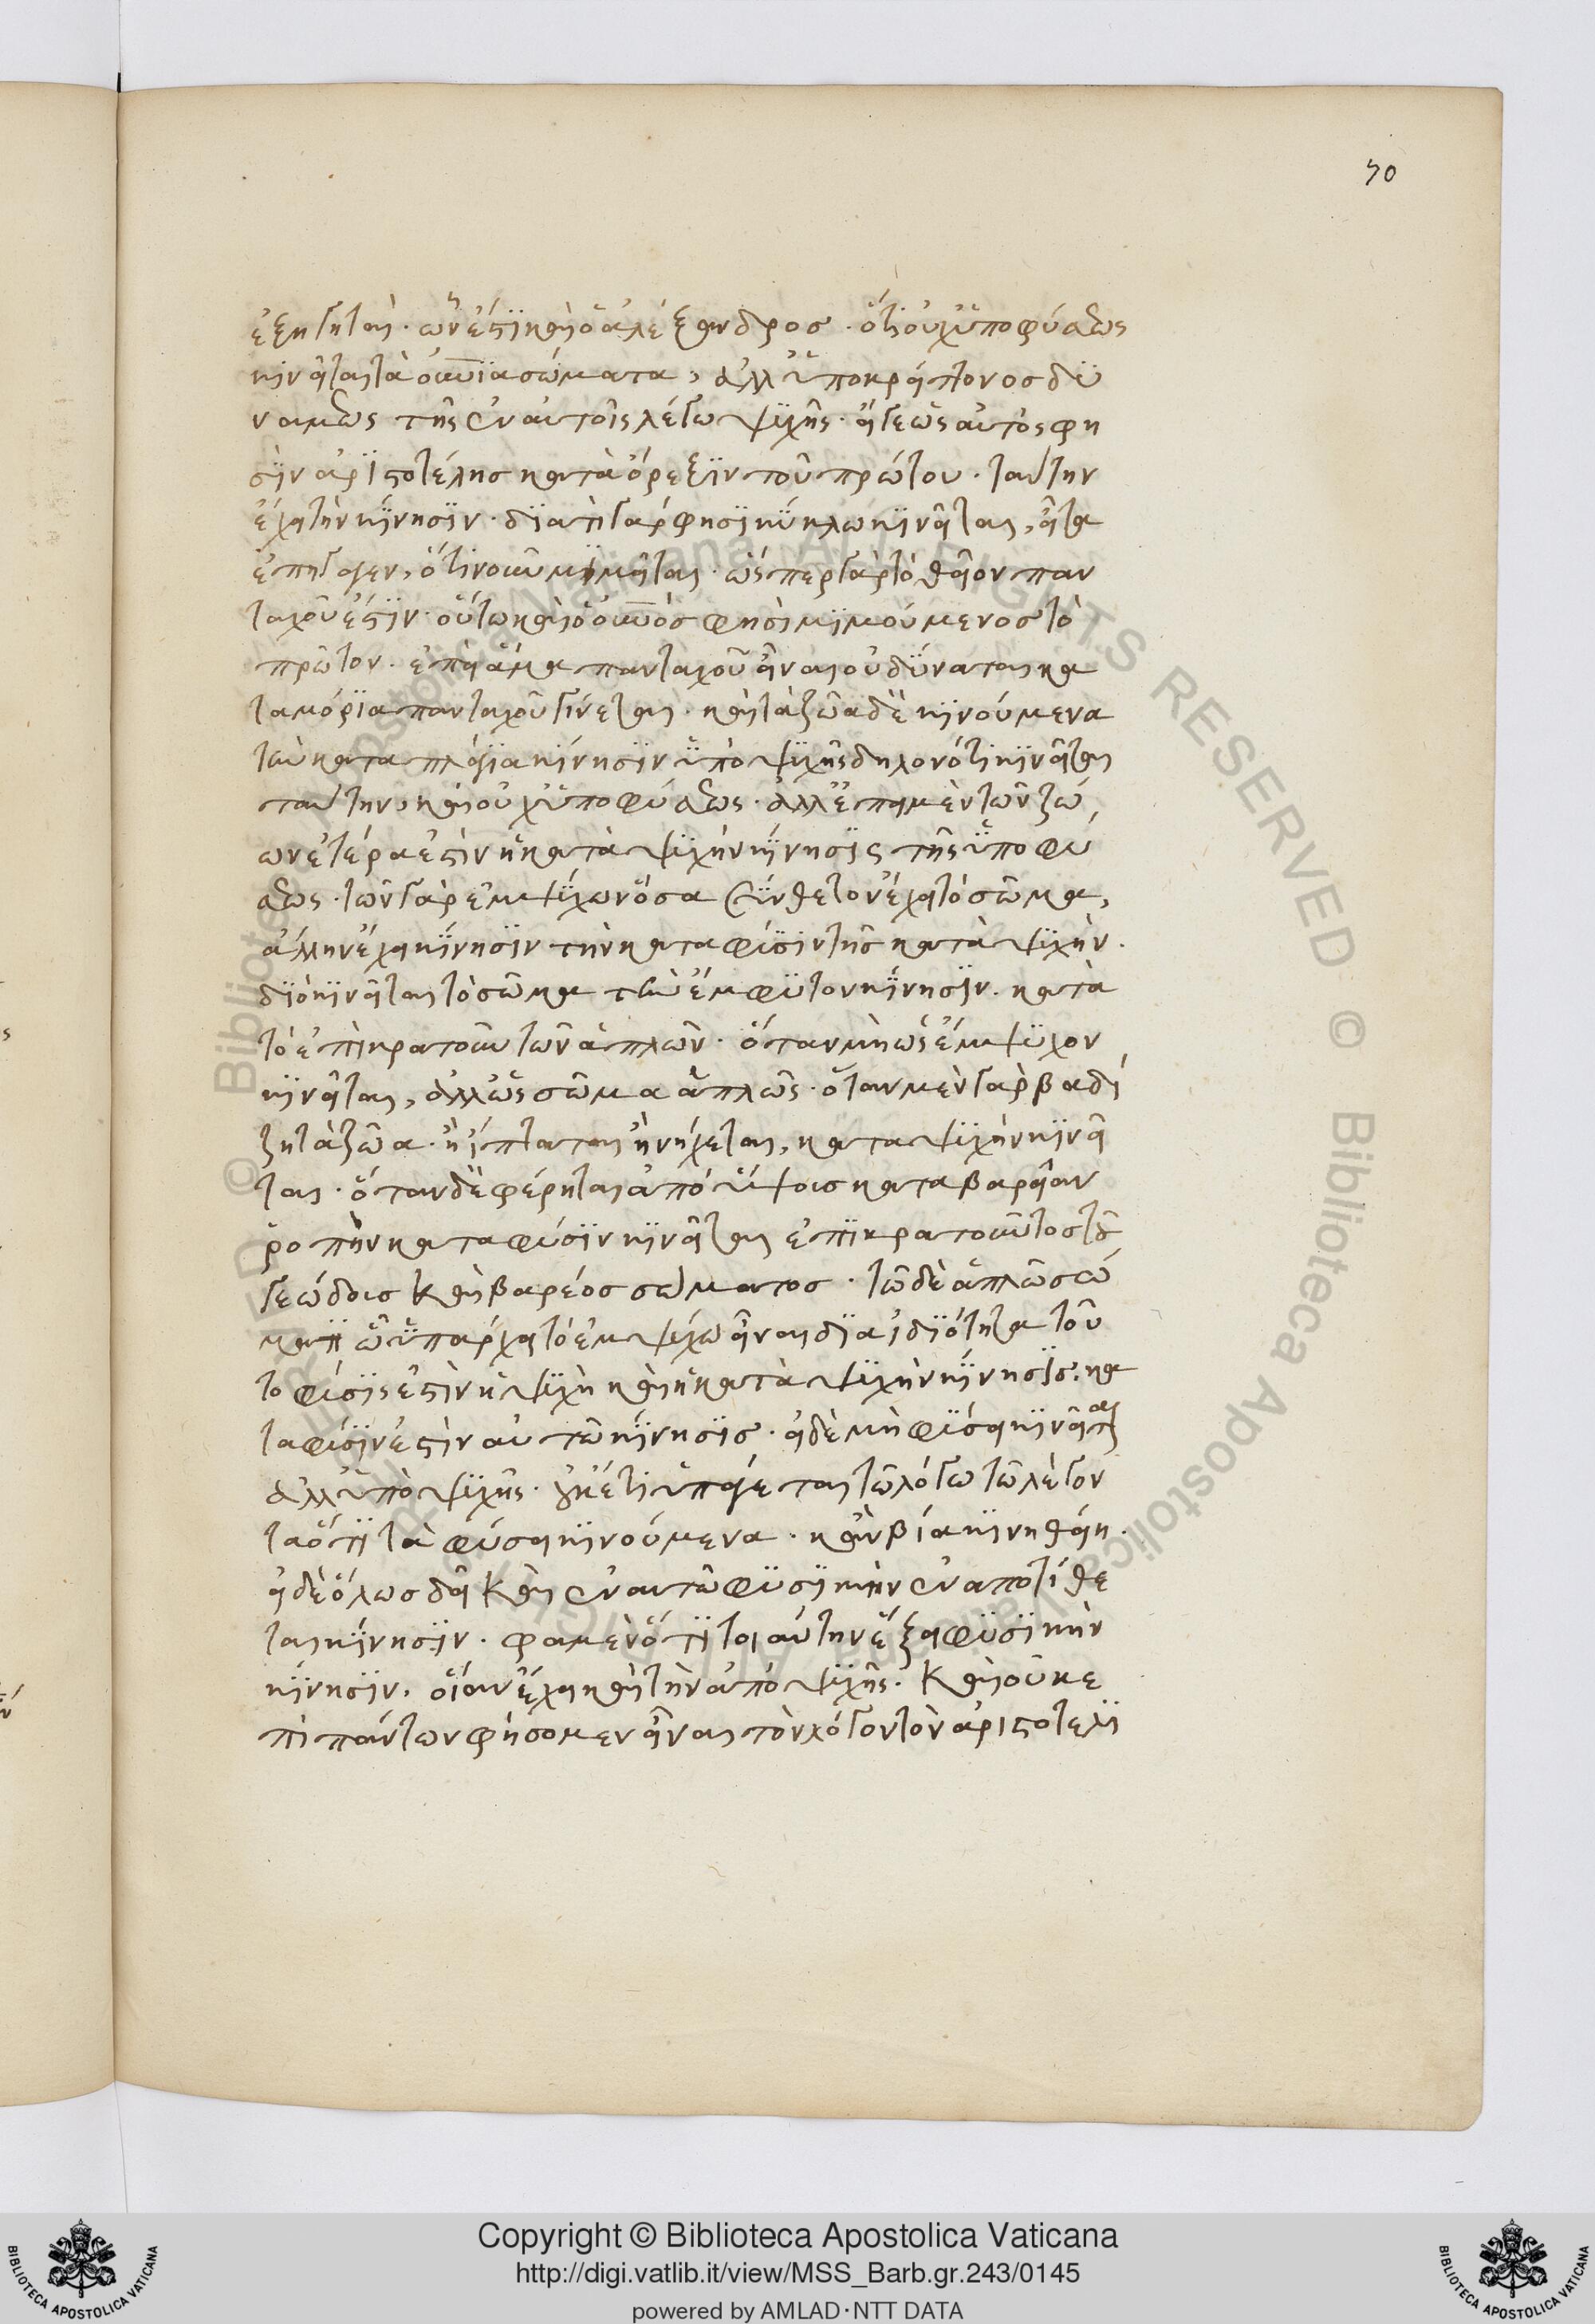 70
ἐξηγηταὶ· ὧν ἐστὶ καὶ ὁ ἀλέξανδρος· ὅτι οὐχ ὑπο φύσεως
κινεῖται τὰ οὐνϊα σώματα, ἀλλ' ὑπο κρείττονος δυ
νάμεως τῆς ἐν αὐτοῖς λέγω ψυχῆς· εἴγε ὡς αὐτός φη
σὶν ἀριστοτέλης κατὰ ὄρεξιν τοῦ πρώτου· ταύτην
ἔχει τὴν κίνησιν· διατὶ γάρ φησι κύκλω κινεῖται, εἶτα
ἐπήγαγεν, ὅτι νοῦν μιμεῖται· ὥσπερ γὰρ τὸ θεῖον παν
ταχοῦ ἐστὶν· οὕτω καὶ ὁ οὐνὸς φησὶ μιμούμενος τὸ
πρῶτον. ἐπεὶ ἅμα πανταχοῦ εἶναι οὐ δύναται κα
τα μόρια πανταχοῦ γίνεται· καὶ τὰ ζῶα δὲ κινούμενα
τὴν κατα πλάγια κίνησιν ὑπὸ ψυχῆς δηλονότι κινεῖται
ταύτην, καὶ οὐχ ὑπο φύσεως· ἀλλ' ἐπει μὲν τῶν ζώ
ων ἑτέρα ἐστὶν ἡ κατὰ ψυχὴν κίνησις τῆς ὑπο φύ
σεως· τῶν γὰρ ἐμψύχων ὅσα σύνθετον ἔχει τὸ σῶμα,
ἄλλην ἔχει κίνησιν τὴν κατα φύσιν τῆς κατὰ ψυχὴν.
διὸ κινεῖται τὸ σῶμα τὴν ἔμφυτον κίνησιν. κατὰ
τὸ ἐπικρατοῦν τῶν ἁπλῶν· ὅταν μὴ ὡς ἔμψυχον
κινεῖται, ἀλλ' ὡς σῶμα ἁπλῶς· ὅταν μὲν γὰρ βαδί
ζη τὰ ζῶα· ἢ ἵπταται ἢ νήχεται, κατα ψυχὴν κινεῖ
ται· ὅταν δὲ φέρηται ἀπὸ ὕψοις κατα βαρεῖαν
ῥοπὴν κατα φύσιν κινεῖται ἐπικρατοῦντος τοῦ
γεώδοις καὶ βαρέος σώματος· τῶ δὲ ἁπλῶ σώ
ματι ὧ ὑπάρχει τὸ ἐμψύχω εἶναι δια ἰδιότητα τοῦ
το φύσις ἐστὶν ἡ ψυχὴ καὶ ἡ κατὰ ψυχὴν κίνησις· κα
τα φύσιν ἐστὶν αὐτῶ κίνησις· εἰ δὲ μὴ φύσει κινεῖται
ἀλλ' ὑπὸ ψυχῆς· οὐκέτι ὑπάγεται τῶ λόγω τῶ λέγον
τα ὅτι τὰ φύσει κινούμενα· κἂν βία κινηθείη·
εἰ δὲ ὅλως δεῖ καὶ ἐν αὐτῶ φυσικὴν ἐναποτίθε
ται κίνησιν· φαμὲν ὅτι τοιαύτην ἕξει φυσικὴν
κίνησιν. οἵαν ἔχει καὶ τὴν ἀπὸ ψυχῆς· καὶ οὐκ ε
πὶ πάντων φήσομεν εἶναι τὸν λόγον τὸν ἀριστοτελι
Copyright © Biblioteca Apostolica Vaticana
http://digi.vatlib.it/view/MSS_Barb.gr.243/0145
powered by AMLAD·NTT DATA